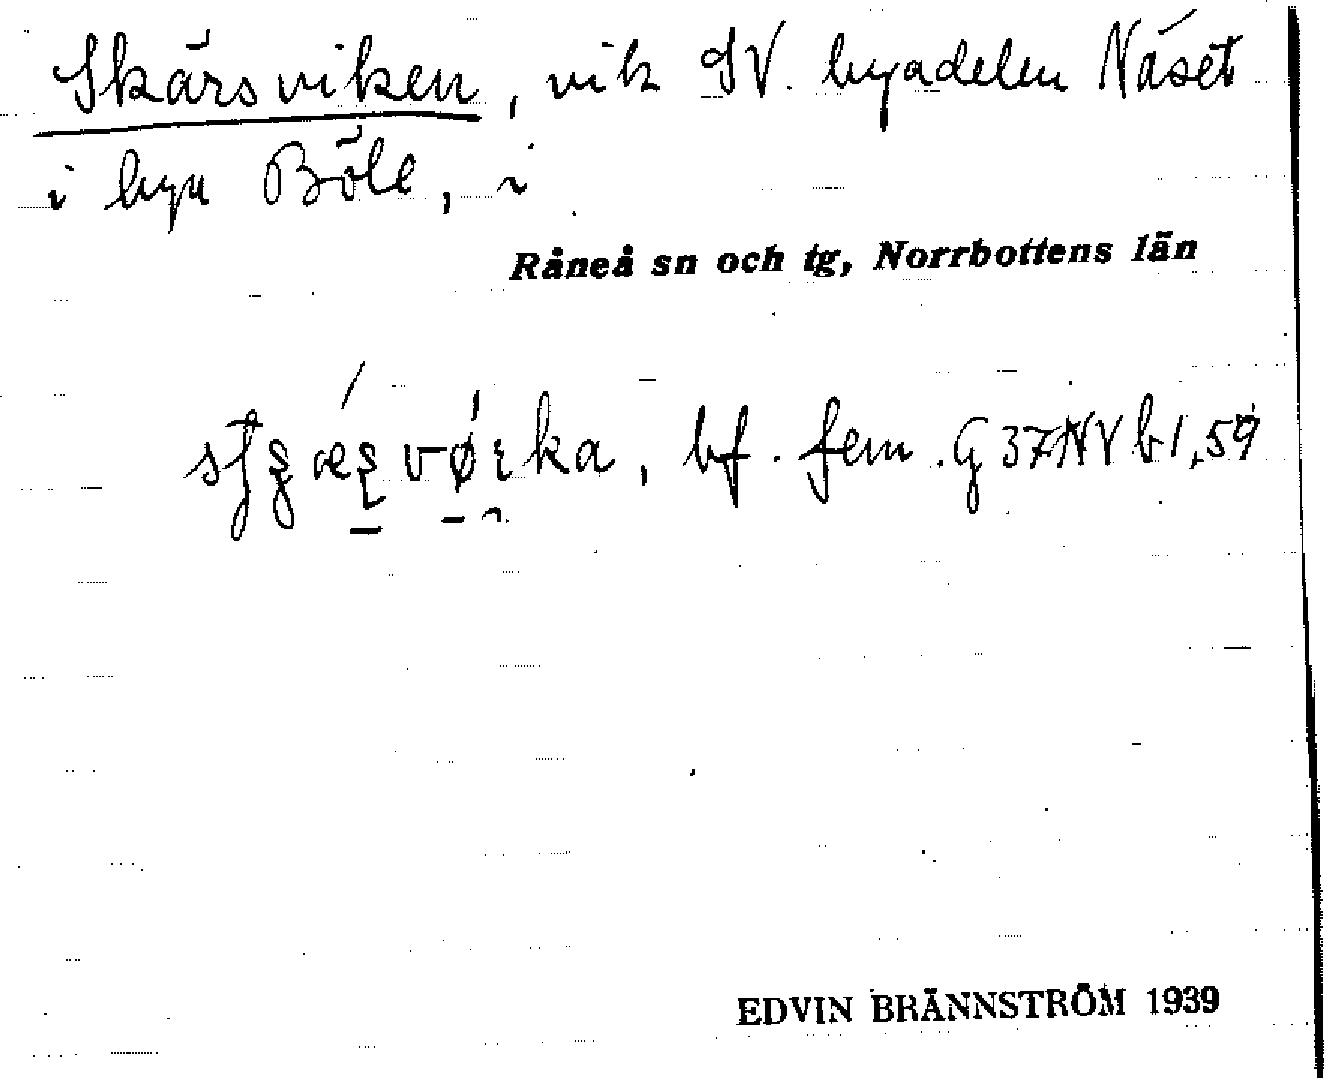 Skärsviken, vik SV. byadelen Näset
i byn Böle, i
Råneå sn och tg, Norrbottens län
bf. fem. G 37 NV b 1, 59
EDVIN BRÄNNSTRÖM 1939